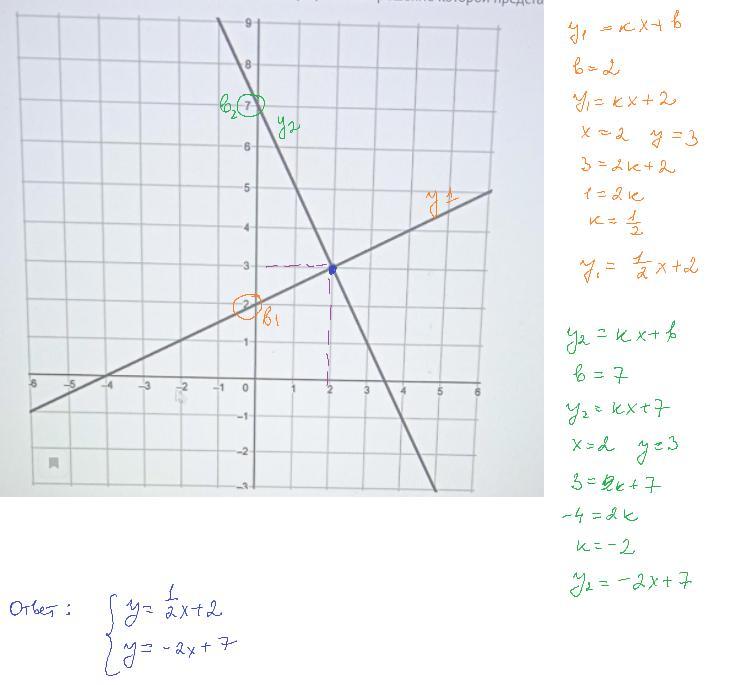 9
8
b₂ 7 y₂
6
5
y 1
4
3
2
b₁
1
-6 -5 -4 -3 -2 -1 0 1 2 3 4 5 6
-1
-2
-3
y₁ = kx+b
b=2
y₁=kx+2
x=2 y=3
3=2k+2
1=2k
k=1/2
y₁= 1/2x+2
y₂=kx+b
b=7
y₂=kx+7
x=2 y=3
3=2k+7
-4=2k
k=-2
y₂=-2x+7
Ответ: { y=1/2x+2
y=-2x+7